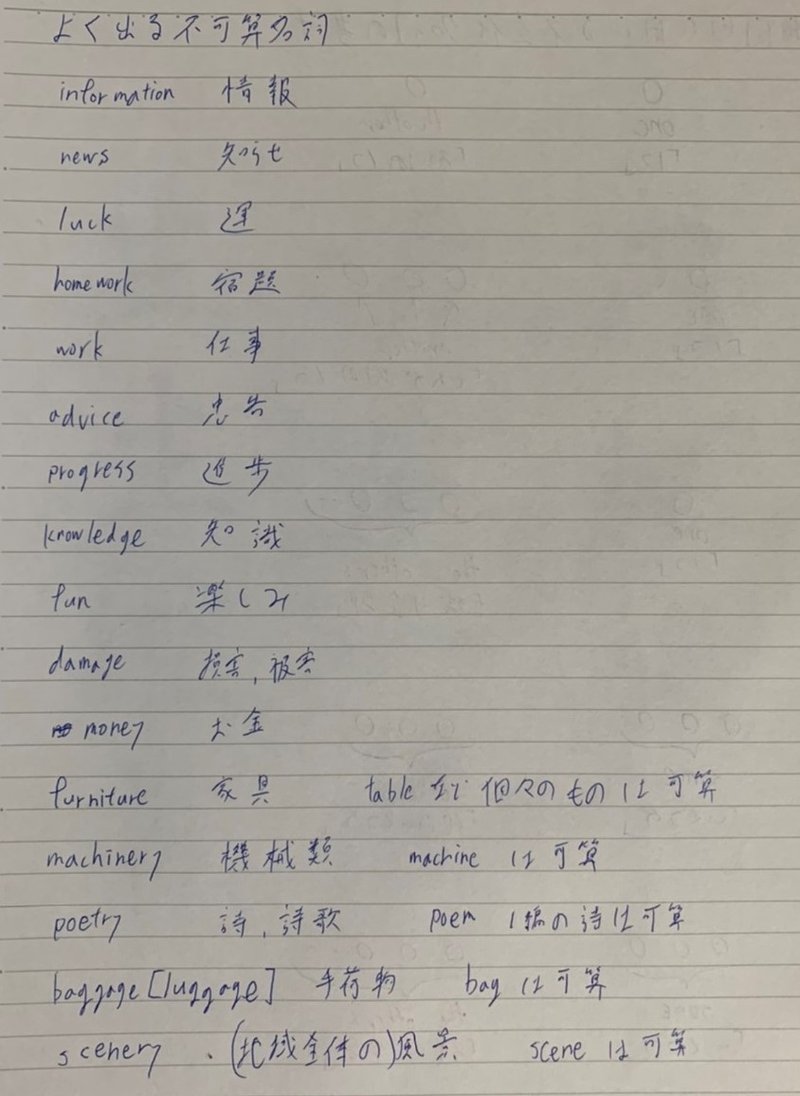 よく出る不可算名詞
information 情報
news 知らせ
luck 運
homework 宿題
work 仕事
advice 忠告
progress 進歩
knowledge 知識
fun 楽しみ
damage 損害,被害
money お金
furniture 家具 table など個々のものは可算
machinery 機械類 machine は可算
poetry 詩,詩歌 poem 1編の詩は可算
baggage[luggage] 手荷物 bag は可算
scenery ・(地域全体の)風景 scene は可算